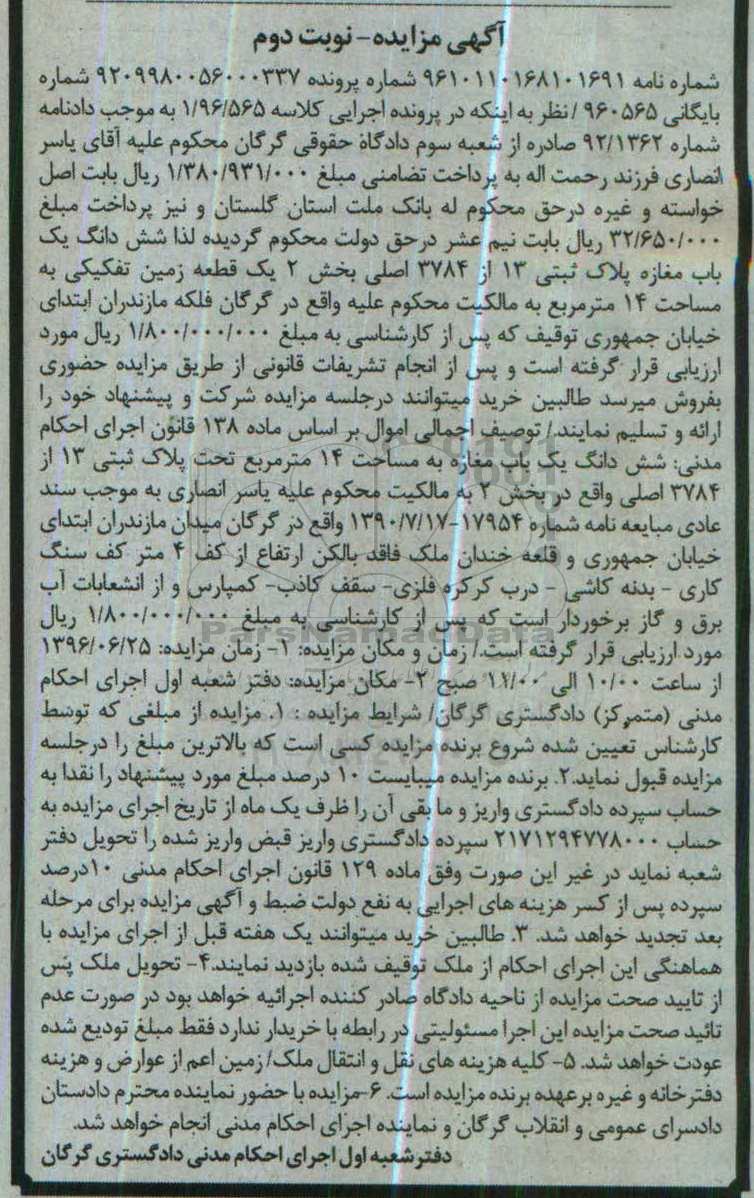 آگهی مزایده - نوبت دوم
شماره نامه ۹۶۱۰۱۱۰۱۶۸۱۰۱۶۹۱ شماره پرونده ۹۲۰۹۹۸۰۰۵۶۰۰۰۳۳۷ شماره
بایگانی ۹۶۰۵۶۵ / نظر به اینکه در پرونده اجرایی کلاسه ۱/۹۶/۵۶۵ به موجب دادنامه
شماره ۹۲/۱۳۶۲ صادره از شعبه سوم دادگاه حقوقی گرگان محکوم علیه آقای یاسر
انصاری فرزند رحمت اله به پرداخت تضامنی مبلغ ۱/۳۸۰/۹۳۱/۰۰۰ ریال بابت اصل
خواسته و غیره درحق محکوم له بانک ملت استان گلستان و نیز پرداخت مبلغ
۳۲/۶۵۰/۰۰۰ ریال بابت نیم عشر درحق دولت محکوم گردیده لذا شش دانگ یک
باب مغازه پلاک ثبتی ۱۳ از ۳۷۸۴ اصلی بخش ۲ یک قطعه زمین تفکیکی به
مساحت ۱۴ مترمربع به مالکیت محکوم علیه واقع در گرگان فلکه مازندران ابتدای
خیابان جمهوری توقیف که پس از کارشناسی به مبلغ ۱/۸۰۰/۰۰۰/۰۰۰ ریال مورد
ارزیابی قرار گرفته است و پس از انجام تشریفات قانونی از طریق مزایده حضوری
بفروش میرسد طالبین خرید میتوانند درجلسه مزایده شرکت و پیشنهاد خود را
ارائه و تسلیم نمایند./ توصیف اجمالی اموال بر اساس ماده ۱۳۸ قانون اجرای احکام
مدنی: شش دانگ یک باب مغازه به مساحت ۱۴ مترمربع تحت پلاک ثبتی ۱۳ از
۳۷۸۴ اصلی واقع در بخش ۲ به مالکیت محکوم علیه یاسر انصاری به موجب سند
عادی مبایعه نامه شماره ۱۷۹۵۴-۱۳۹۰/۷/۱۷ واقع در گرگان میدان مازندران ابتدای
خیابان جمهوری و قلعه خندان ملک فاقد بالکن ارتفاع از کف ۴ متر کف سنگ
کاری - بدنه کاشی - درب کرکره فلزی- سقف کاذب- کمپارس و از انشعابات آب
برق و گاز برخوردار است که پس از کارشناسی به مبلغ ۱/۸۰۰/۰۰۰/۰۰۰ ریال
مورد ارزیابی قرار گرفته است./ زمان و مکان مزایده: ۱- زمان مزایده: ۱۳۹۶/۰۶/۲۵
از ساعت ۱۰/۰۰ الی ۱۱/۰۰ صبح ۲- مکان مزایده: دفتر شعبه اول اجرای احکام
مدنی (متمرکز) دادگستری گرگان/ شرایط مزایده : ۱. مزایده از مبلغی که توسط
کارشناس تعیین شده شروع برنده مزایده کسی است که بالاترین مبلغ را درجلسه
مزایده قبول نماید.۲. برنده مزایده میبایست ۱۰ درصد مبلغ مورد پیشنهاد را نقدا به
حساب سپرده دادگستری واریز و ما بقی آن را ظرف یک ماه از تاریخ اجرای مزایده به
حساب ۲۱۷۱۲۹۴۷۷۸۰۰۰ سپرده دادگستری واریز قبض واریز شده را تحویل دفتر
شعبه نماید در غیر این صورت وفق ماده ۱۲۹ قانون اجرای احکام مدنی ۱۰درصد
سپرده پس از کسر هزینه های اجرایی به نفع دولت ضبط و آگهی مزایده برای مرحله
بعد تجدید خواهد شد. ۳. طالبین خرید میتوانند یک هفته قبل از اجرای مزایده با
هماهنگی این اجرای احکام از ملک توقیف شده بازدید نمایند.۴- تحویل ملک پس
از تایید صحت مزایده از ناحیه دادگاه صادر کننده اجرائیه خواهد بود در صورت عدم
تائید صحت مزایده این اجرا مسئولیتی در رابطه با خریدار ندارد فقط مبلغ تودیع شده
عودت خواهد شد. ۵- کلیه هزینه های نقل و انتقال ملک/ زمین اعم از عوارض و هزینه
دفترخانه و غیره برعهده برنده مزایده است. ۶-مزایده با حضور نماینده محترم دادستان
دادسرای عمومی و انقلاب گرگان و نماینده اجرای احکام مدنی انجام خواهد شد.
دفترشعبه اول اجرای احکام مدنی دادگستری گرگان
ParsNamadData